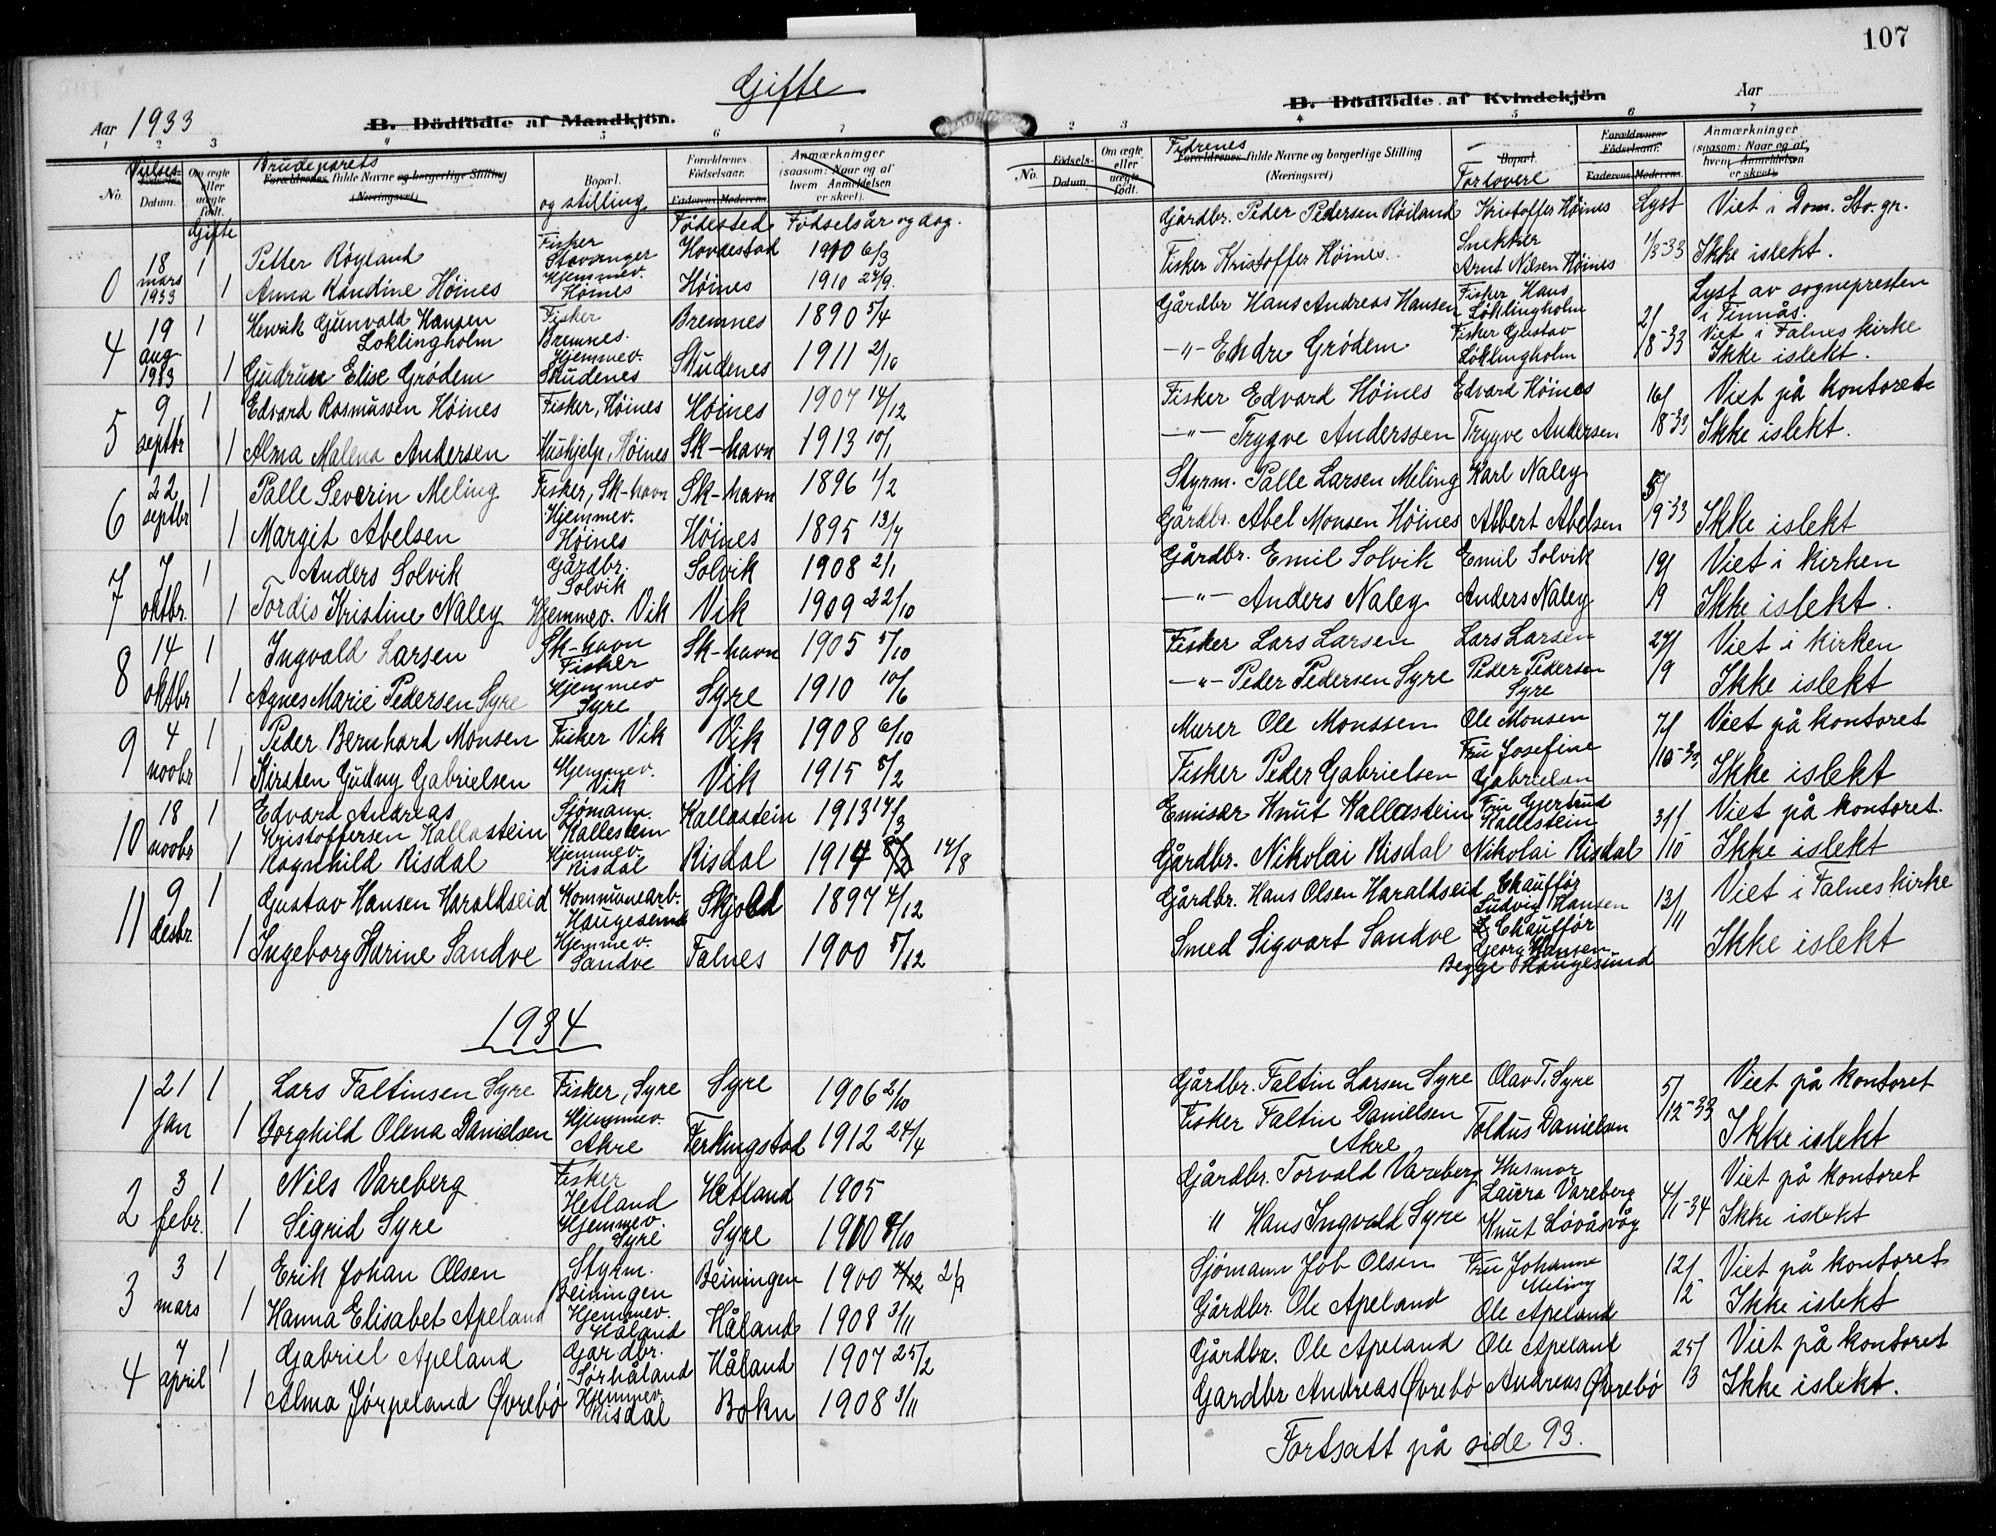 107
Gifte
Aar 1933
B. Dödfödte af Mandkjön.
B. Dödfödte af Kvindekjön
Aar
1 2 3 4 5 6 7
2 3 4 5 6 7
No. Vielses- Födsels- Datum. Om ægte eller uægte födt. Gifte
Brudeparets Forældrenes fulde Navne og borgerlige Stilling (Næringsvei)
Bopæl. og stilling
Forældrenes Födselsaar. Faderens Moderens Fødested
Anmærkninger (saasom: Naar og af hvem Anmeldelsen er skeet). Fødselsår og dag.
No. Födsels- Datum. Om ægte eller uægte födt.
Fedrenes Forældrenes fulde Navne og borgerlige Stilling (Næringsvei)
Bopæl. Forlovere
Forældrenes Födselsaar. Faderens Moderens Lyst
Anmærkninger (saasom: Naar og af hvem Anmeldelsen er skeet).
0 18 mars 1933 1 Petter Röyland Fisker Stavanger Hovdestad 1910 6/3 Gårdbr. Peder Pedersen Röiland Kristoffer Höines Snekker 1/3-33 Viet i Dom. Sto. gr.
1 Anna Randine Höines Hjemmev. Höines Höines 1910 24/9 Fisker Kristoffer Höines. Arnt Nilsen Höines Ikke islekt.
4 19 aug. 1933 1 Henrik Gunvald Hansen Loklingholm Fisker Bremnes. Bremnes 1890 5/4 Gårdbr Hans Andreas Hansen Fisker Hans Löklingholm 2/8-33 Lyst av sognepresten i Finnås.
1 Gudrun Elise Grödem Hjemmev. Skudenes Skudenes 1911 2/10 -"- Endre Grödem Fisker Gustav Löklingholm Viet i Falnes kirke Ikke islekt.
5 9 septbr 1 Edvard Rasmussen Höines Fisker, Höines Höines 1907 14/12 Fisker Edvard Höines Edvard Höines 16/8-33 Viet på kontoret
1 Alma Malena Andersen Hushjelp, Höines Sk-havn 1913 10/1 -"- Trygve Anderssen Trygve Andersen Ikke islekt.
6 22 septbr 1 Palle Severin Meling Fisker, Sk-havn Sk-havn 1896 1/2 Styrm. Palle Larsen Meling Karl Naley 5/9-33
1 Margit Abelsen Hjemmev. Höines Höines 1895 13/7 Gårdbr. Abel Monsen Höines Albert Abelsen Ikke islekt
7 7 oktbr. 1 Anders Solvik Gårdbr. Solvik Solvik 1908 2/1 Gårdbr. Emil Solvik Emil Solvik 19/9 Viet i kirken
1 Tordis Kristine Naley Hjemmev. Vik Vik 1909 22/10 -"- Anders Naley Anders Naley Ikke islekt.
8 14 oktbr 1 Ingvald Larsen Sk-havn Fisker Sk-havn 1905 5/10 Fisker Lars Larsen Lars Larsen 27/9 Viet i kirken
1 Agnes Marie Pedersen Syre Hjemmev Syre Syre 1910 10/6 -"- Peder Pedersen Syre Peder Pedersen Syre Ikke islekt
9 4 novbr 1 Peder Bernhard Monsen Fisker Vik Vik 1908 6/10 Murer Ole Monssen Ole Monsen 7/10-33 Viet på kontoret
1 Kirsten Gudny Gabrielsen Hjemmev. Vik Vik 1915 5/2 Fisker Peder Gabrielsen Fru Josefine Gabrielsen Ikke islekt
10 18 novbr 1 Edvard Andreas Kristoffersen Kallastein Sjömann. Kallestein Kallastein 1913 17/3 Emisær Knut Kallastein Fru Gjertrud Kallestein 31/10 Viet på kontoret.
1 Ragnhild Risdal Hjemmev. Risdal Risdal 1914 14/8 Gårdbr. Nikolai Risdal Nikolai Risdal Ikke islekt
11 9 desbr. 1 Gustav Hansen Haraldseid Kommunearb. Haugesund Skjold 1897 4/12 Gårdbr. Hans Olsen Haraldseid Chaufför Ludvig Hansen 13/11 Viet i Falnes kirke
1 Ingeborg Karine Sandve Hjemmev. Sandve Falnes 1900 5/12 Smed Sigvart Sandve Chaufför Georg Hansen Begge Haugesund Ikke islekt
1934
1 21 jan 1 Lars Faltinsen Syre Fisker, Syre Syre 1906 2/10 Gårdbr. Faltin Larsen Syre Olav T. Syre 5/12-33 Viet på kontoret
1 Borghild Olena Danielsen Hjemmev. Akre Ferkingstad 1912 24/4 Fisker Faltin Danielsen Akre Toldus Danielsen Ikke islekt
2 3 febr. 1 Nils Vareberg Fisker Hetland Hetland 1905 Gårdbr. Torvald Vareberg Husmor Laura Vareberg 4/1-34 Viet på kontoret
1 Sigrid Syre Hjemmev. Syre Syre 1910 8/10 " Hans Ingvald Syre Knut Lövåsvåg Ikke islekt
3 3 mars 1 Erik Johan Olsen Styrm. Beiningen Beiningen 1900 4/12 2/9 Sjömann Job Olsen Fru Johanne Meling 12/2 Viet på kontoret
1 Hanna Elisabet Apeland Hjemmev. Håland Håland 1908 3/11 Gårdbr. Ole Apeland Ole Apeland Ikke islekt
4 7 april 1 Gabriel Apeland Gardbr. Sörhåland Håland 1907 25/2 Gårdbr. Ole Apeland Ole Apeland 25/3 Viet på kontoret
1 Alma Jörpeland Øvrebö Hjemmev. Risdal Bokn 1908 3/11 Gardbr Andreas Øvrebö Andreas Øvrebö Ikke islekt.
Fortsatt på side 93.